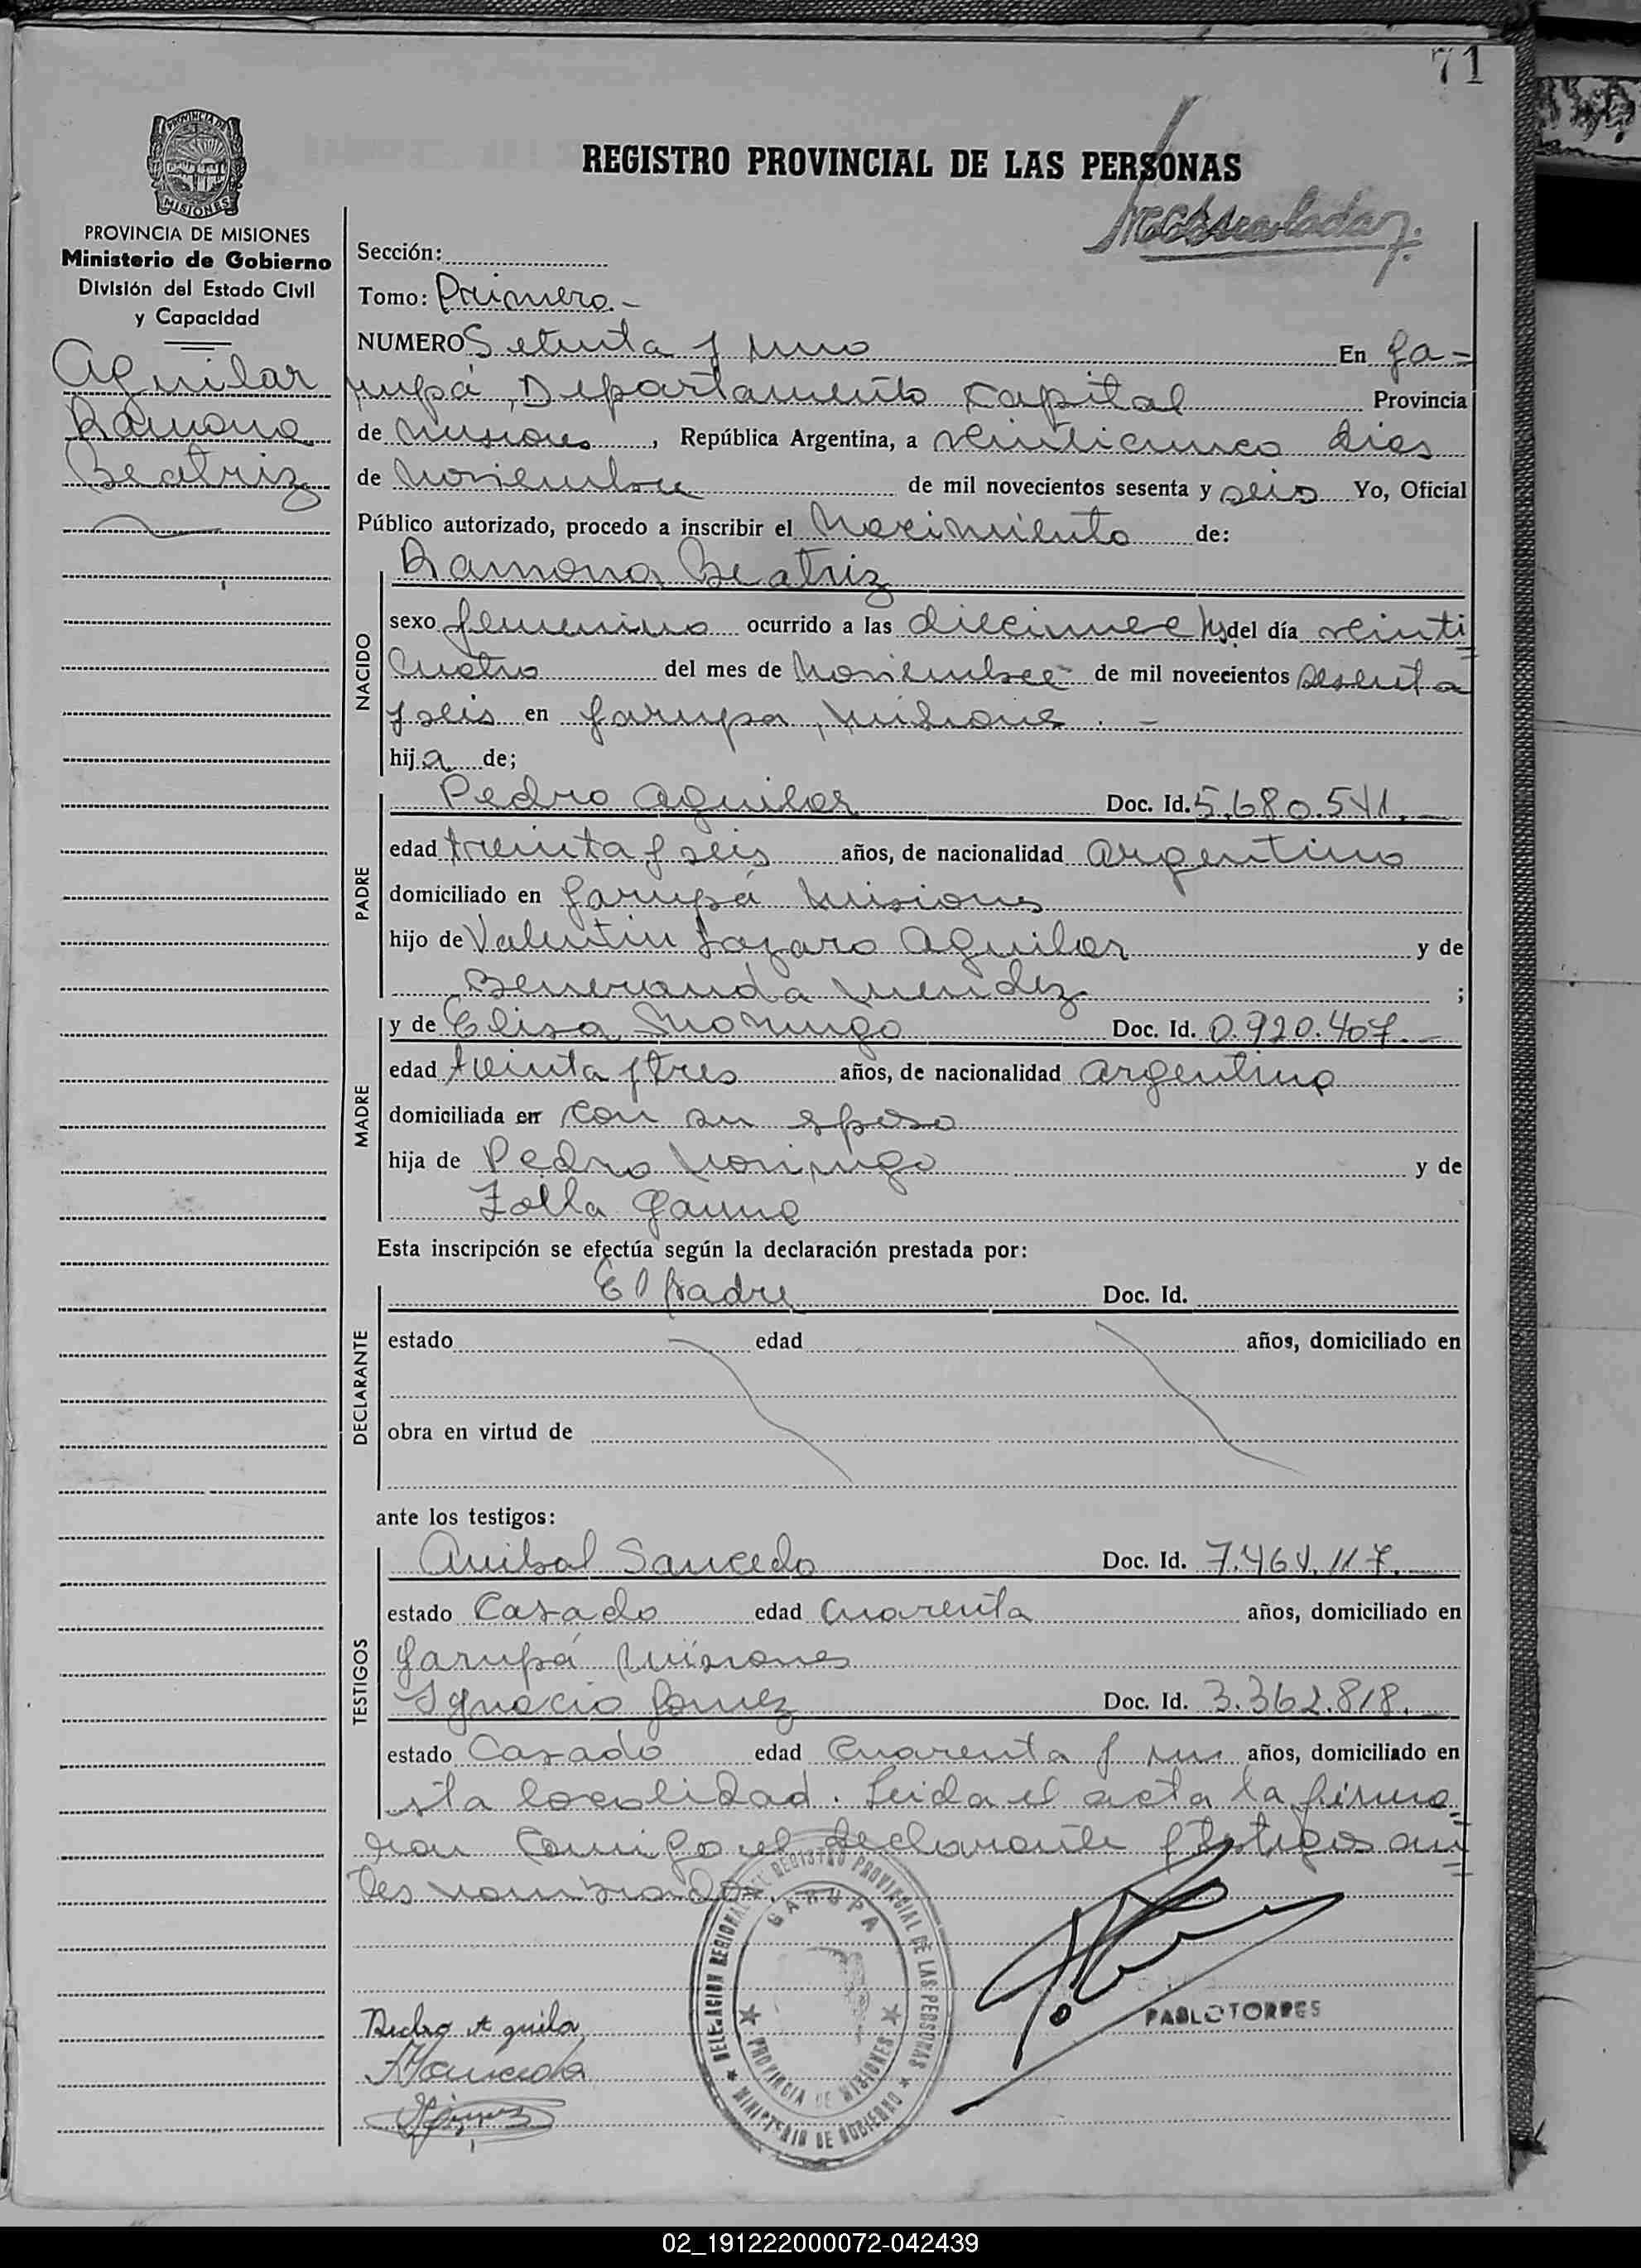 71
PROVINCIA DE
MISIONES
REGISTRO PROVINCIAL DE LAS PERSONAS
PROVINCIA DE MISIONES
Ministerio de Gobierno
División del Estado Civil
y Capacidad
Aguilar
Ramona
Beatriz
Sección:
Tomo: Primero.-
NUMERO Setenta y uno En Ga=
rupá, Departamento Capital Provincia
de Misiones, República Argentina, a veinticinco dias
de Noviembre de mil novecientos sesenta y seis Yo, Oficial
Público autorizado, procedo a inscribir el Nacimiento de:
NACIDO
Ramona Beatriz
sexo femenino ocurrido a las diecinueve hs del día veinti
cuatro del mes de Noviembre de mil novecientos sesenta
y seis en Garupa, Misiones.-
hija de;
PADRE
Pedro Aguilar Doc. Id. 5.680.541.
edad treinta y seis años, de nacionalidad Argentino
domiciliado en Garupá Misiones
hijo de Valentin Lazaro Aguilar y de
Beneranda Mendez ;
MADRE
y de Elisa Doc. Id. 0.920.407.
edad treinta y tres años, de nacionalidad Argentina
domiciliada en con su esposo
hija de Pedro y de
Zoila Gauna
Esta inscripción se efectúa según la declaración prestada por:
DECLARANTE
El padre Doc. Id.
estado edad años, domiciliado en
obra en virtud de
ante los testigos:
TESTIGOS
Anibal Saucedo Doc. Id. 7.464.117.
estado Casado edad Cuarenta años, domiciliado en
Garupá Misiones
Ignacio Gomez Doc. Id. 3.362.818.
estado Casado edad Cuarenta y un años, domiciliado en
sta localidad. Leida el acta la firma=
ran conmigo el declarante y testigos an
tes nombrados.
DELEGACION REGIONAL DEL REGISTRO PROVINCIAL DE LAS PERSONAS
GARUPA
PROVINCIA DE MISIONES
MINISTERIO DE GOBIERNO
Pedro Aguilar
PABLO TORRES
02_191222000072-042439